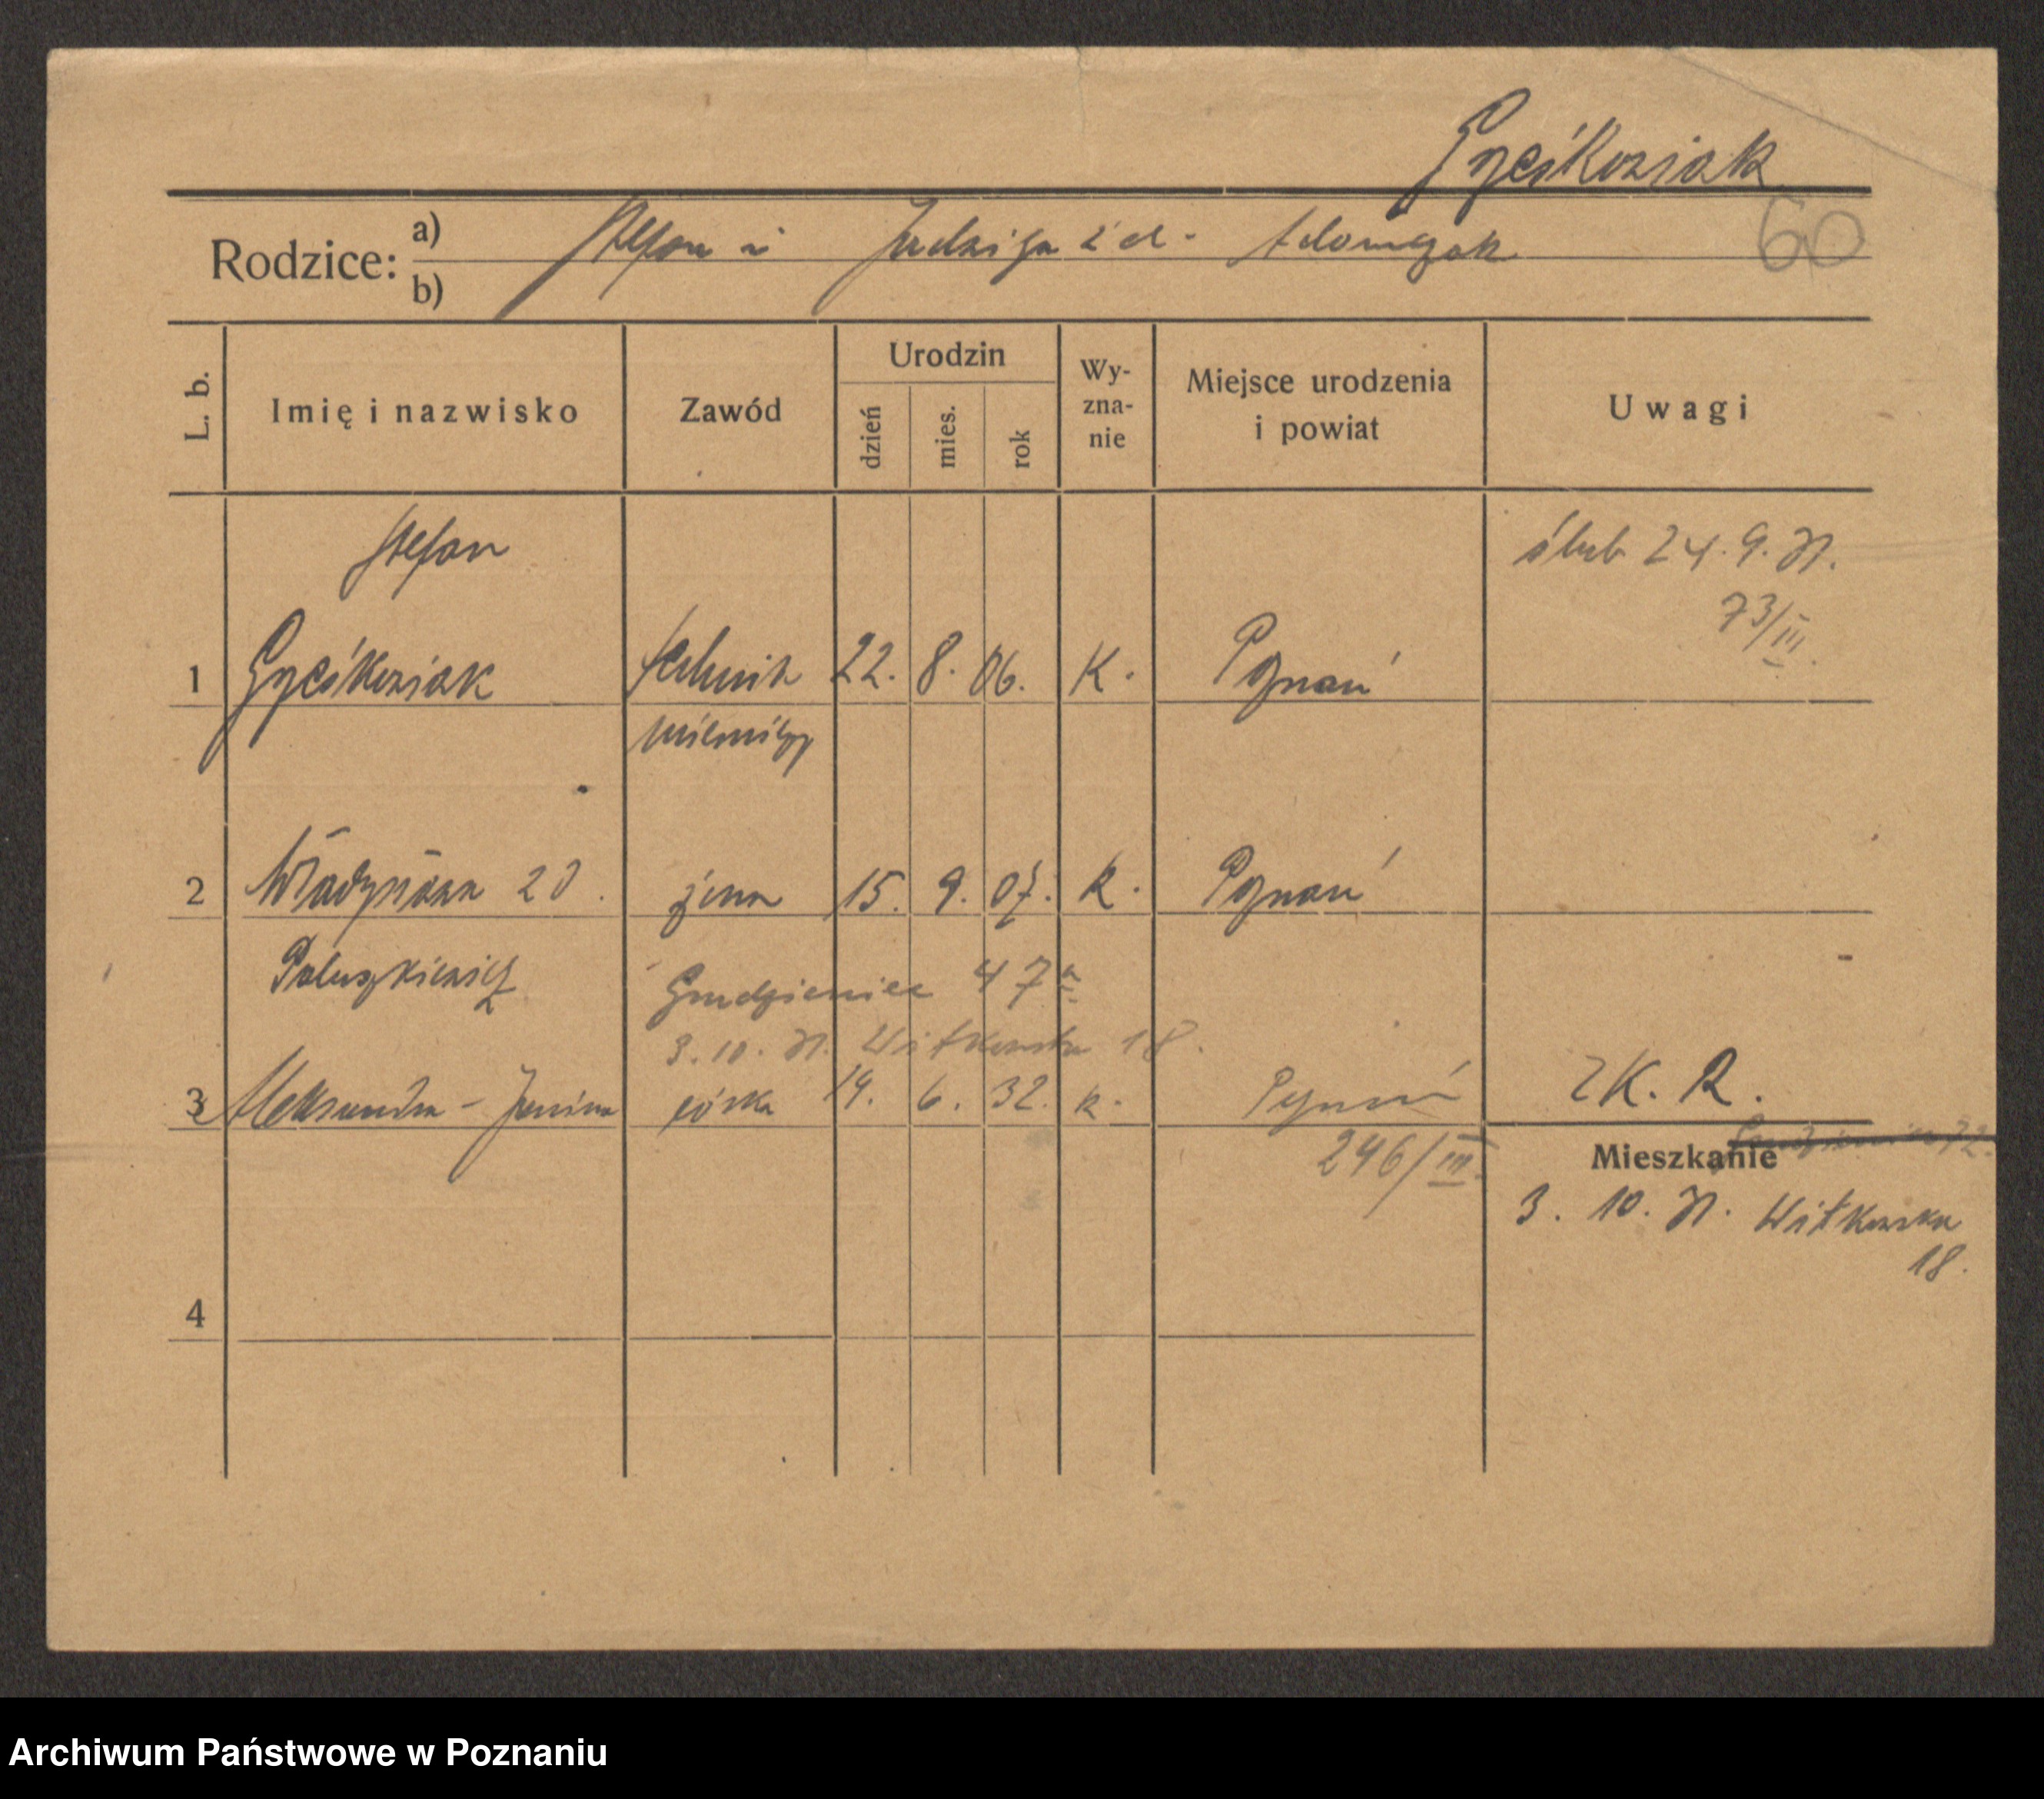 Gześkowiak
60
Rodzice: a) Stefan i Jadwiga z d. Adamczak
b)
L. b. Imię i nazwisko Zawód Urodzin dzień mies. rok Wyznanie Miejsce urodzenia i powiat Uwagi
Stefan ślub 24. 9. 31.
73/III.
1 Gześkowiak technik 22. 8. 06. K. Poznań
mierniczy
2 Władysława z d. żona 15. 9. 07. K. Poznań
Paluszkiewicz Grudzieniec 47a
3. 10. 31. Witkowska 18.
3 Aleksandra - Janina córka 19. 6. 32. k. Poznań ZK. R.
246/III. Mieszkanie Grudzieniec 72.
3. 10. 31. Witkowska
18.
4
Archiwum Państwowe w Poznaniu